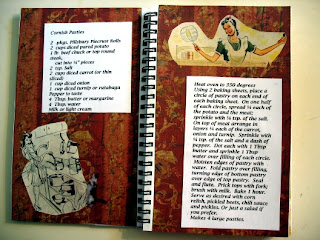 Cornish Pasties
2 pkgs. Pillsbury Piecrust Rolls
2 cups diced pared potato
1 lb beef chuck or top round
steak,
cut into ¼" pieces
2 tsp. Salt
2 cups diced carrot (or thin
sliced)
1 cup diced onion
1 cup diced turnip or rutabaga
Pepper to taste
4 Tbsp. butter or margarine
4 Tbsp. water
Milk or light cream
Heat oven to 350 degrees
Using 2 baking sheets, place a
circle of pastry on each end of
each baking sheet. On one half
of each circle, spread ¼ each of
the potato and the meat;
sprinkle with ¼ tsp. of the salt.
On top of meat arrange in
layers ¼ each of the carrot,
onion and turnip. Sprinkle with
¼ tsp. of the salt and a dash of
pepper. Dot each with 1 Tbsp
butter and sprinkle 1 Tbsp
water over filling of each circle.
Moisten edges of pastry with
water. Fold pastry over filling,
turning edge of bottom pastry
over edge of top pastry. Seal
and flute. Prick tops with fork;
brush with milk. Bake 1 hour.
Serve as desired with corn
relish, pickled beets, chili sauce
and pickles. Or just a salad if
you prefer.
Makes 4 large pasties.